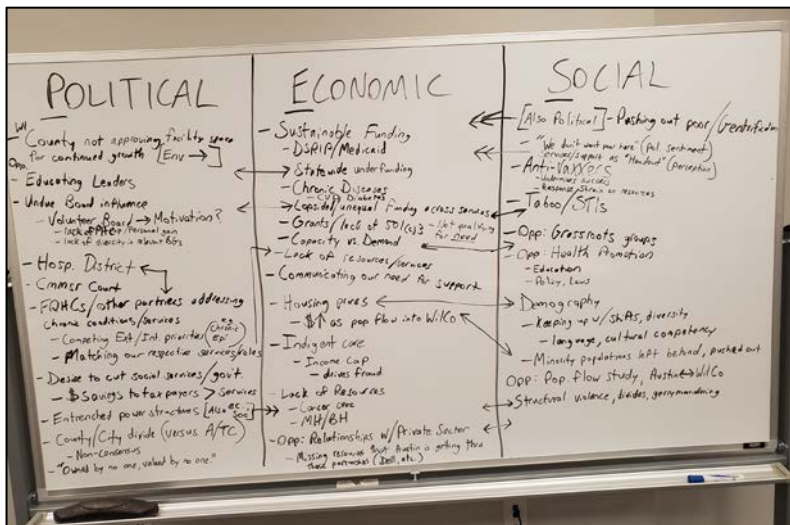 POLITICAL
County not approving facility space
for continued growth [Env →]
Opp.
- Educating Leaders
- Undue Board influence
- Volunteer Board → Motivation?
- lack of / personal gain
- lack of diversity in relevant
- Hosp. District
- Cmmsr Court
- FQHCs/other partners addressing
chronic conditions/services
- Competing Ext/Int. priorities (e.g. chronic epi)
- Matching our respective services/roles
- Desire to cut social services/gov't.
- $ savings to taxpayers > services
- Entrenched power structures [Also ec soc]
- County/City divide (versus A/TC)
- Non-consensus
- "Owned by no one, valued by no one."
ECONOMIC
- Sustainable Funding
- DSRIP/Medicaid
- Statewide underfunding
- Chronic Diseases
- CVD, Diabetes
- Lopsided/unequal funding across services
- Grants/lack of 501(c)3 - Not qualifying for need
- Capacity vs. Demand
- Lack of resources/services
- Communicating our need for support
- Housing prices
- $↑ as pop flow into WilCo
- Indigent care
- Income cap
- drives fraud
- Lack of Resources
- Cancer care
- MH/BH
- Opp: Relationships w/Private Sector
- Missing resources that Austin is getting thru
these partnerships (Dell, etc.)
SOCIAL
[Also Political] - Pushing out poor/Gentrification
- "We don't want poor here" (Pol. sentiment)
services/support as "Handout" (perception)
- Anti-Vaxxers
- Undermines success
- Response/strain on resources
- Taboo/STIs
- Opp: Grassroots groups
- Opp: Health Promotion
- Education
- Policy, Laws
- Demography
- Keeping up w/ shifts, diversity
- language, cultural competency
- Minority populations left behind, pushed out
Opp: Pop. flow study, Austin ↔ WilCo
Structural violence, divides, gerrymandering